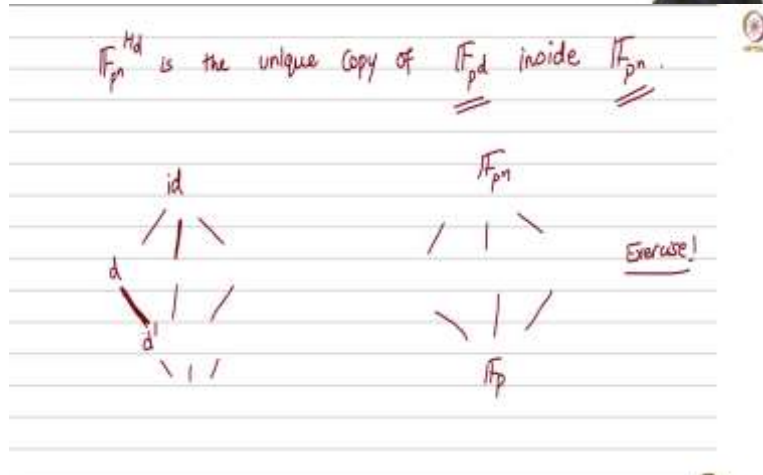 𝔽_{pⁿ}^{H_d} is the unique copy of 𝔽_{p^d} inside 𝔽_{pⁿ}.
id 𝔽_{pⁿ}
Exercise!
d
d'
𝔽_p